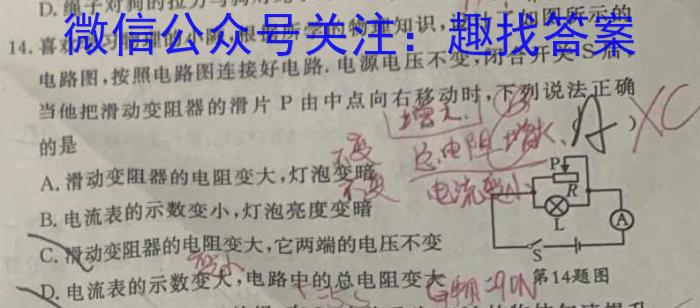 D.绳子对狗的拉力与狗对绳子
微信公众号关注：趣找答案
14.喜欢学习物理的小陈,根据所学的物理知识, 图所示的
电路图,按照电路图连接好电路.电源电压不变,闭合开关S后
当他把滑动变阻器的滑片P由中点向右移动时,下列说法正确
的是 ( A ) X
增大
不变
总电阻增大
A.滑动变阻器的电阻变大,灯泡变暗
不变
电流变小
B.电流表的示数变小,灯泡亮度变暗
C.滑动变阻器的电阻变大,它两端的电压不变
变小
D.电流表的示数变大,电路中的总电阻变大
P
R
L
A
S
第14题图